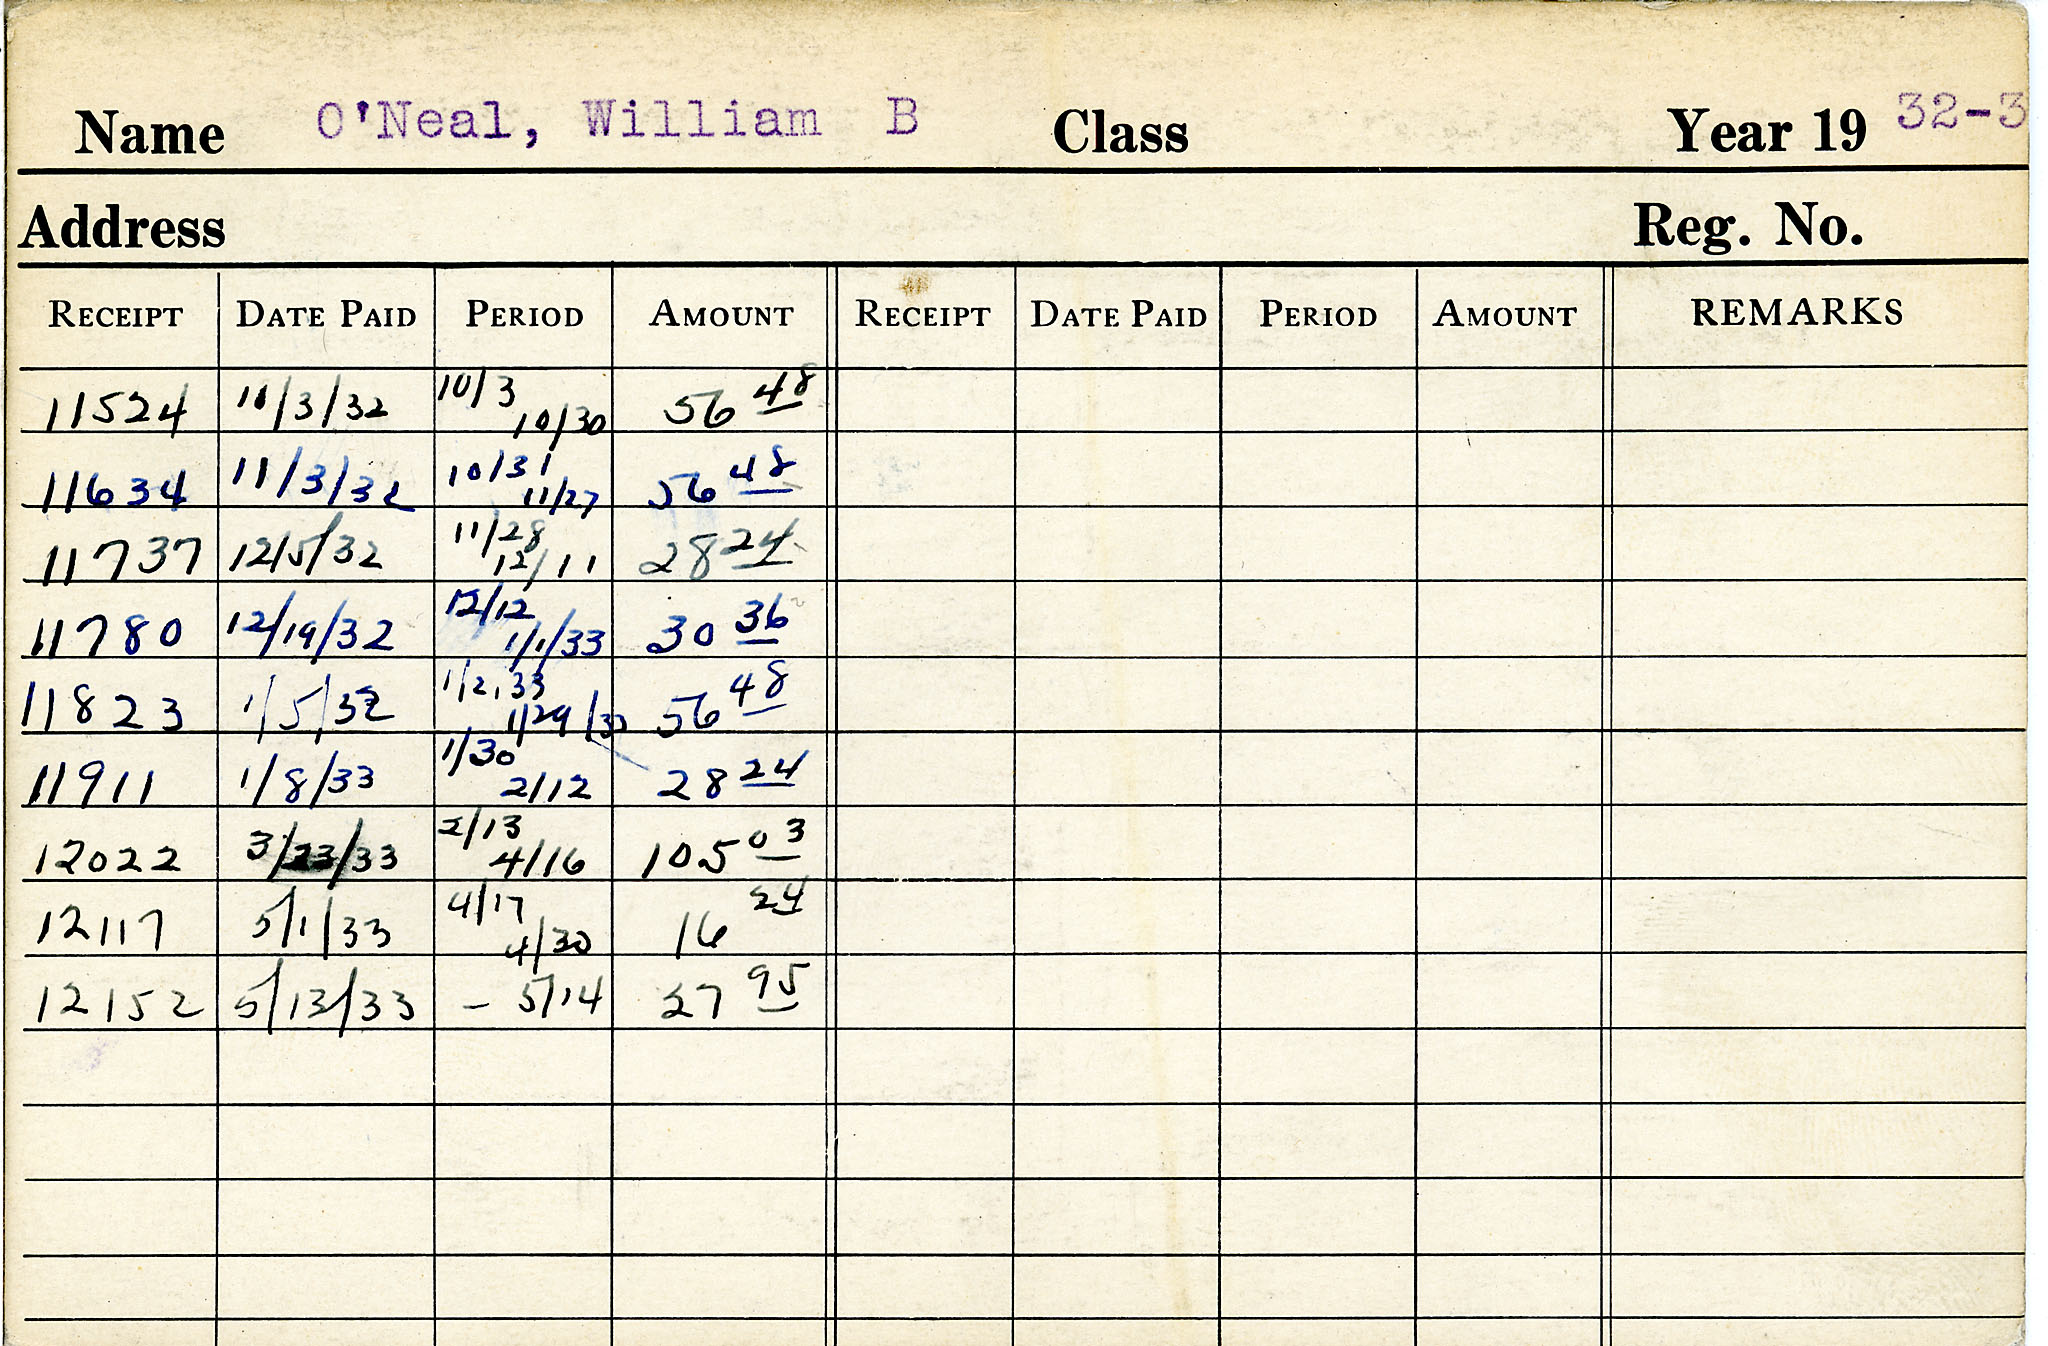 Name O'Neal, William B Class Year 19 32-3
Address Reg. No.
RECEIPT DATE PAID PERIOD AMOUNT RECEIPT DATE PAID PERIOD AMOUNT REMARKS
11524 11/3/32 10/3 10/30 56 48
11634 11/3/32 10/31 11/27 56 48
11737 12/5/32 11/28 12/11 28 24
11780 12/19/32 12/12 1/1/33 30 36
11823 1/5/32 1/2,33 1/29/33 56 48
11911 1/8/33 1/30 2/12 28 24
12022 3/23/33 2/13 4/16 105 03
12117 5/1/33 4/17 4/30 16 24
12152 5/13/33 – 5/14 27 95